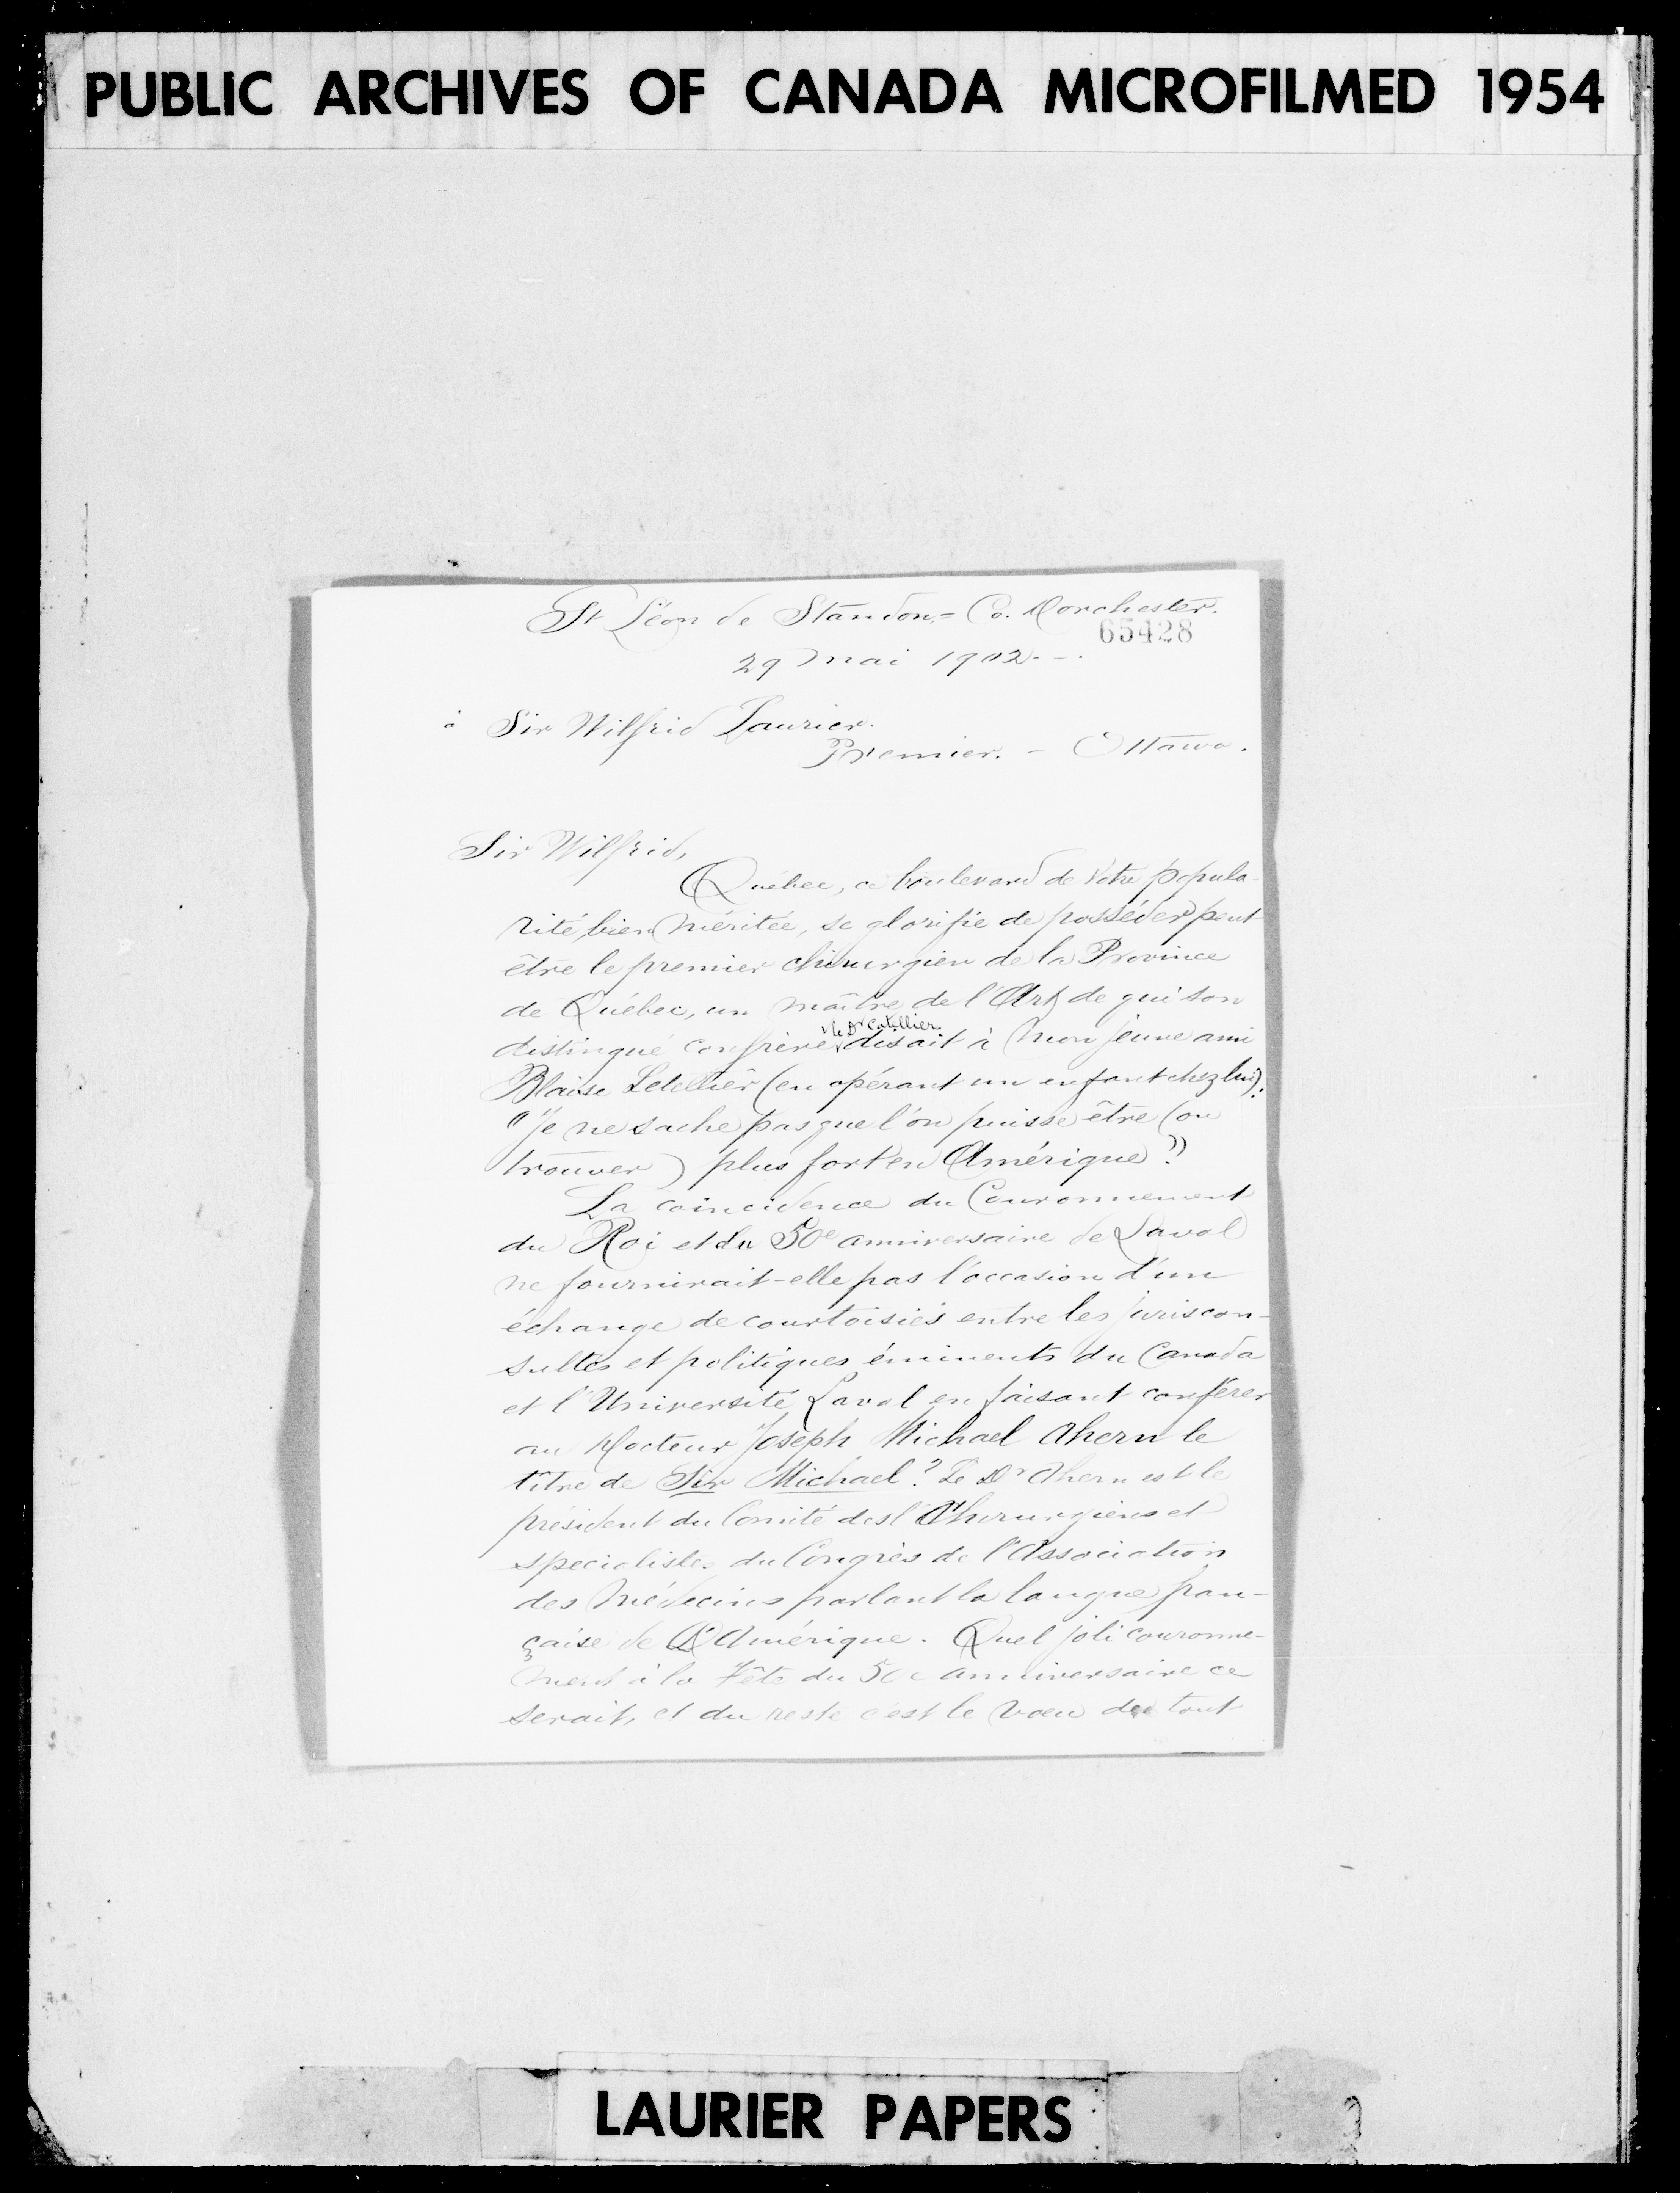 PUBLIC ARCHIVES OF CANADA MICROFILMED 1954
St Léon de Standon = Co. Dorchester.
65428
29 Mai 1902.-.
à Sir Wilfrid Laurier.
Premier. - Ottawa.
Sir Wilfrid,
Québec, ce boulevard de Votre popula-
rité bien méritée, se glorifie de posséder peut
être le premier chirurgien de la Province
de Québec, un maître de l'Art de qui son
le Dr Catellier
distingué confrère disait à mon jeune ami
Blaise Letellier (en opérant un enfant chez lui):
"je ne sache pas que l'on puisse être (ou
trouver) plus fort en Amérique".
La coincidence du Couronnement
du Roi et du 50e anniversaire de Laval
ne fournirait-elle pas l'occasion d'un
échange de courtoisies entre les juriscon-
sultes et politiques éminents du Canada
et l'Université Laval en faisant conférer
au Docteur Joseph Michael Ahern le
titre de Sir Michael? Le Dr Ahern est le
président du Comité des Chirurgiens et
specialistes du Congrès de l'Association
des Médecins parlant la langue fran-
çaise de L'Amérique. Quel joli couronne-
ment à la Fête du 50e anniversaire ce
serait, et du reste c'est le voeu de tout
LAURIER PAPERS